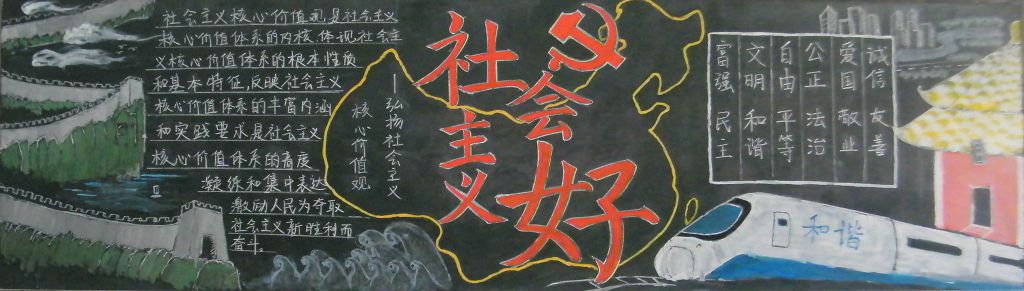 社会主义核心价值观是社会主义
核心价值体系的内核,体现社会主
义核心价值体系的根本性质
和基本特征,反映社会主义
核心价值体系的丰富内涵
和实践要求是社会主义
核心价值体系的高度
凝练和集中表达
激励人民为夺取
社会主义新胜利而
奋斗
——弘扬社会主义
核心价值观
社会主义好
富强 民主
文明 和谐
自由 平等
公正 法治
爱国 敬业
诚信 友善
和谐